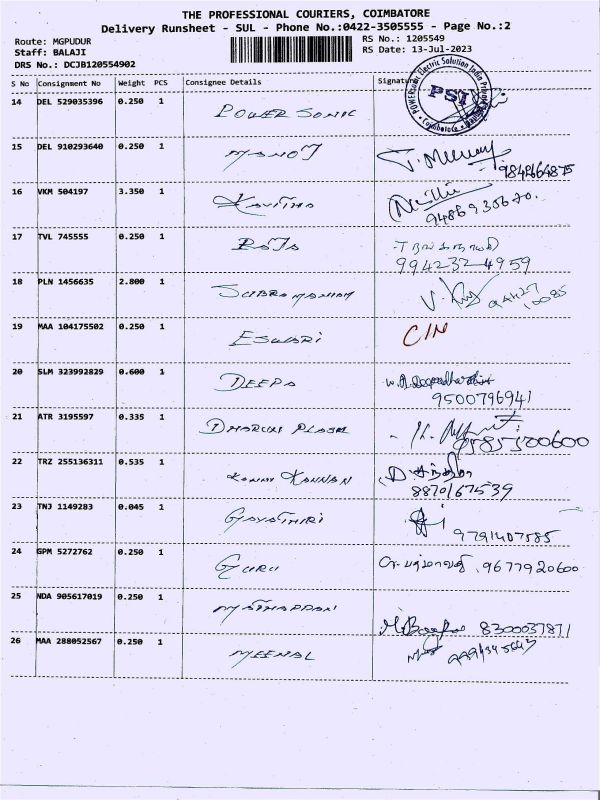 THE PROFESSIONAL COURIERS, COIMBATORE
Delivery Runsheet - SUL - Phone No.:0422-3505555 - Page No.:2
Route: MGPUDUR
RS No.: 1205549
Staff: BALAJI
RS Date: 13-Jul-2023
DRS No.: DCJB120554902
S No Consignment No Weight PCS Consignee Details Signature
14 DEL 529035396 0.250 1 POWER SONIC PSI
15 DEL 910293640 0.250 1 MANOJ
16 VKM 504197 3.350 1 KAVITHA
17 TVL 745555 0.250 1 RAJA
9942324959
18 PLN 1456635 2.800 1 SUBRAMANIAM
19 MAA 104175502 0.250 1 ESWARI C/N
20 SLM 323992829 0.600 1 DEEPA
9500796941
21 ATR 3195597 0.335 1
22 TRZ 255136311 0.535 1 KANNAN
8870167539
23 TNJ 1149283 0.045 1 GAYATHIRI
9791407585
24 GPM 5272762 0.250 1 GURU 9677920600
25 NDA 905617019 0.250 1
8300037871
26 MAA 288052567 0.250 1 MEENAL